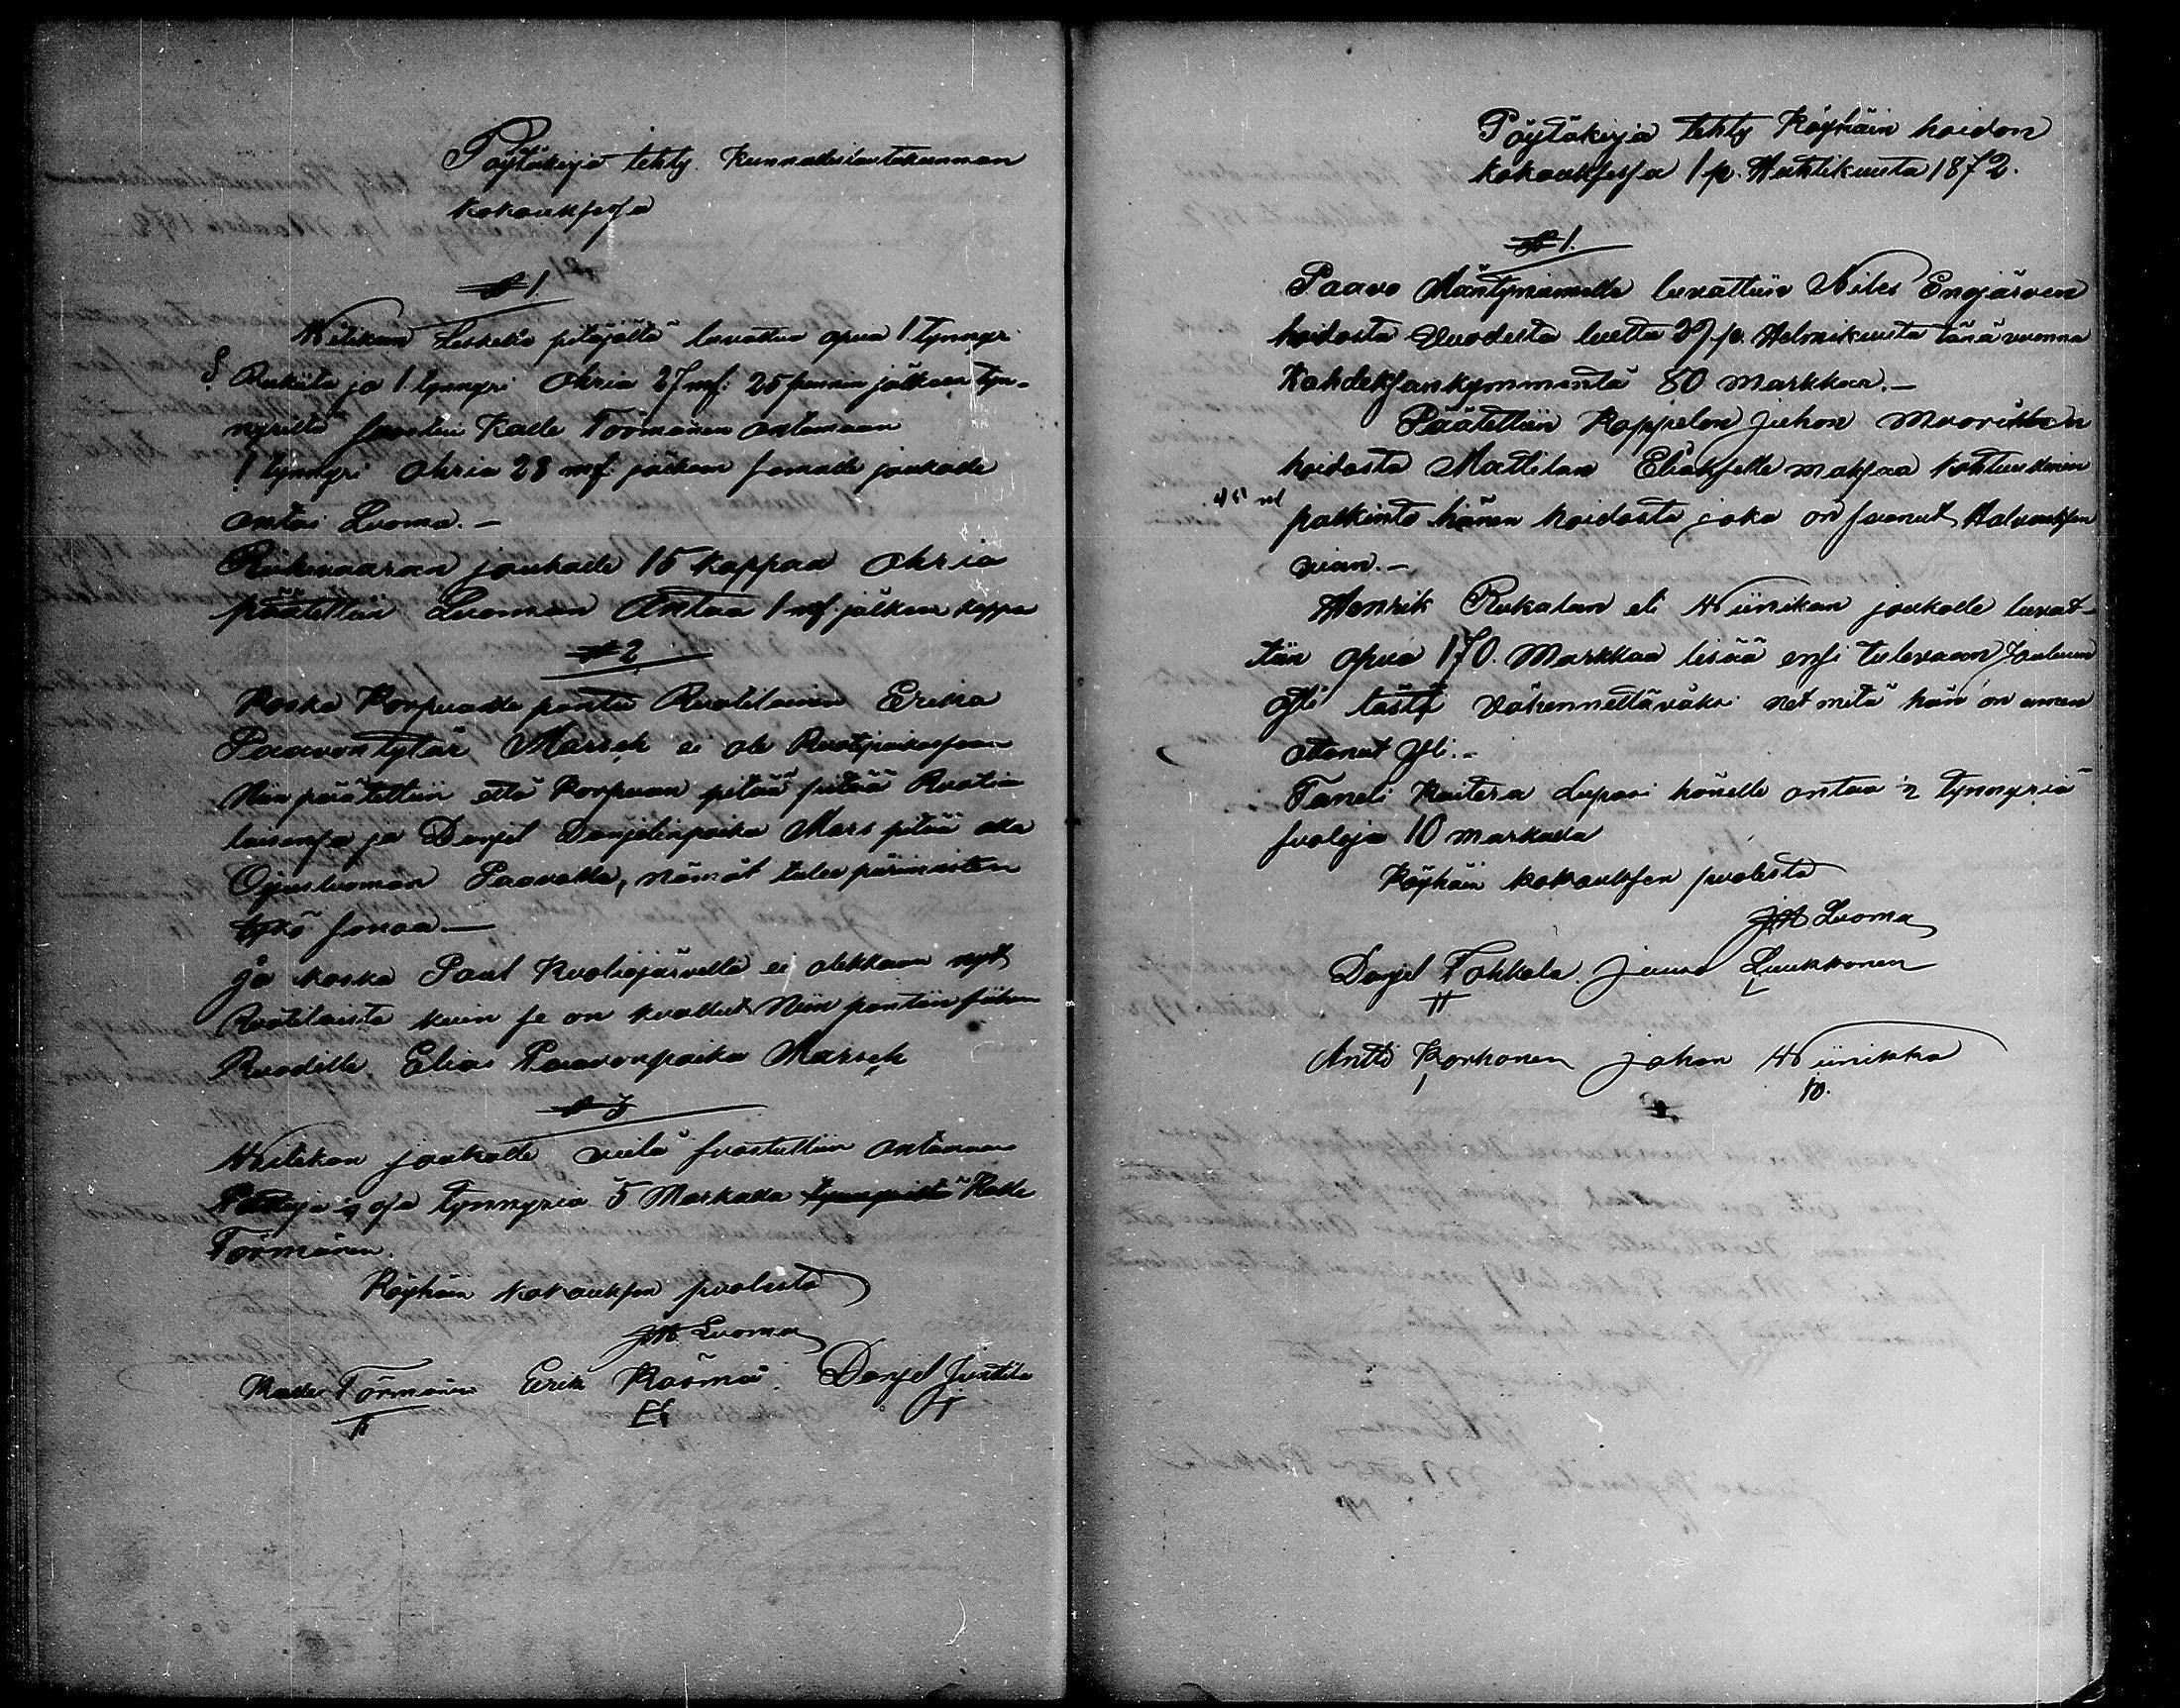 Pöytäkirja tehty Kunnallislautakunnan
kokouksessa
§ 1.
Witikan Leskelä pitäjältä luvattua apua 1 tynnyri
Rukiita ja 1 tynnyri Ohria 27 mf: 25 pennin jälkeen tyn-
nyriltä suostui Kalle Törmänen antamaan
1 tynnyri ohria 28 mf. jälkeen samalle joukolle
antai Luoma.-
Riihivaaran joukolle 15 kappaa Ohria
päätettiin Luoman Antaa 1 mf jälkeen kappa
§ 2
Koska Korpualle pantu Ruotilainen Erika
Paavontytär Marsch ei ole Ruotipaikassaan
Niin päätettiin että Korpuan pitää pitää Ruotia
laisensa ja Danjel Danjelinpoika Mars pitää olla
Ojusluoman Paavolla, nämät tulee pärimisten
työ sanaa.-
Ja koska Paul Kuoliojärvellä ei olekkaan nyt
Ruotilaista kuin se on kuollut Niin pantiin siihen
Ruodille Elias Paavonpoika Marsch
§ 3
Witikan joukolle vielä suostuttiin antamaan
osa tynnyriä 5 Markalla tynnyriltä Kalle
Törmänen.
Köyhäin kokouksen puolesta
JH. Luoma
Kalle Törmänen Erik Räsmä. Danjel Juntila
Pöytäkirja tehty Köyhäin hoidon
kokouksessa 1 p. Huhtikuuta 1872.
§ 1.
Paavo Mäntyniemelle luvattiin Niles Engjärven
hoidosta Vuodelta luetta 27 p. Helmikuuta tänä vuonna
Kahdeksankymmentä 80 markkaa.-
Päätettiin Koppelon Juhon Muorikkan
hoidosta Mattilan Eliakselle maksaa kohtuullinen
palkinto hänen hoidosta joka on saanut Halvauksen
vian.-
Henrik Rukalan eli Wiinikan joukolle luvat-
tiin apua 170. Markkaa lisää ensi tulevaan Jouluun
asti tästä vähennettäväksi net mitä hän on ennen
ottanut yli.-
Taneli Kautera Lupasi hänelle antaa ½ tynnyriä
suoloja 10 markalla
Köyhäin kokouksen puolesta
JH Luoma
Danjel Tohkala. Juuso Luukkonen
Antti Korhonen Johan Wiinikka